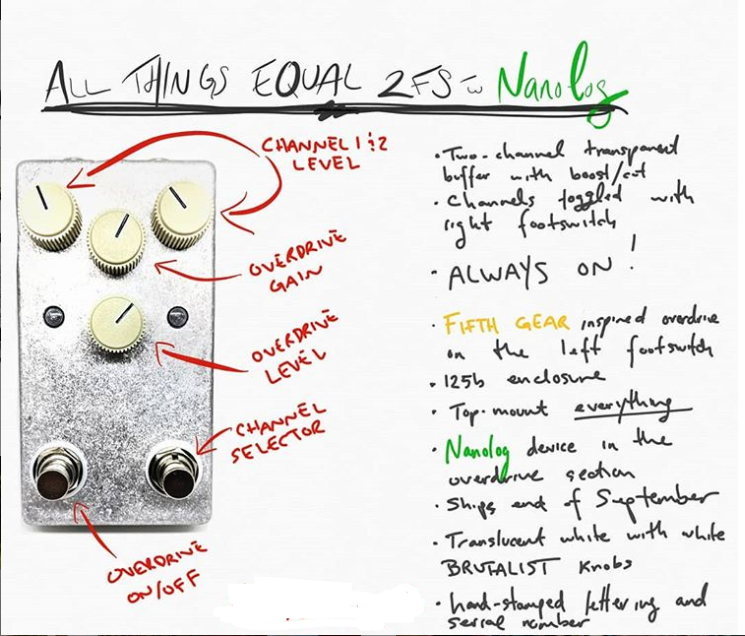 ALL THINGS EQUAL 2FS w Nanolog
CHANNEL 1 & 2
LEVEL
OVERDRIVE
GAIN
OVERDRIVE
LEVEL
CHANNEL
SELECTOR
OVERDRIVE
ON/OFF
• Two-channel transparent
buffer with boost/cut
• Channels toggled with
right footswitch
• ALWAYS ON!
• FIFTH GEAR inspired overdrive
on the left footswitch
• 125b enclosure
• Top-mount everything
• Nanolog device in the
overdrive section
• Ships end of September
• Translucent white with white
BRUTALIST Knobs
• hand-stamped lettering and
serial number